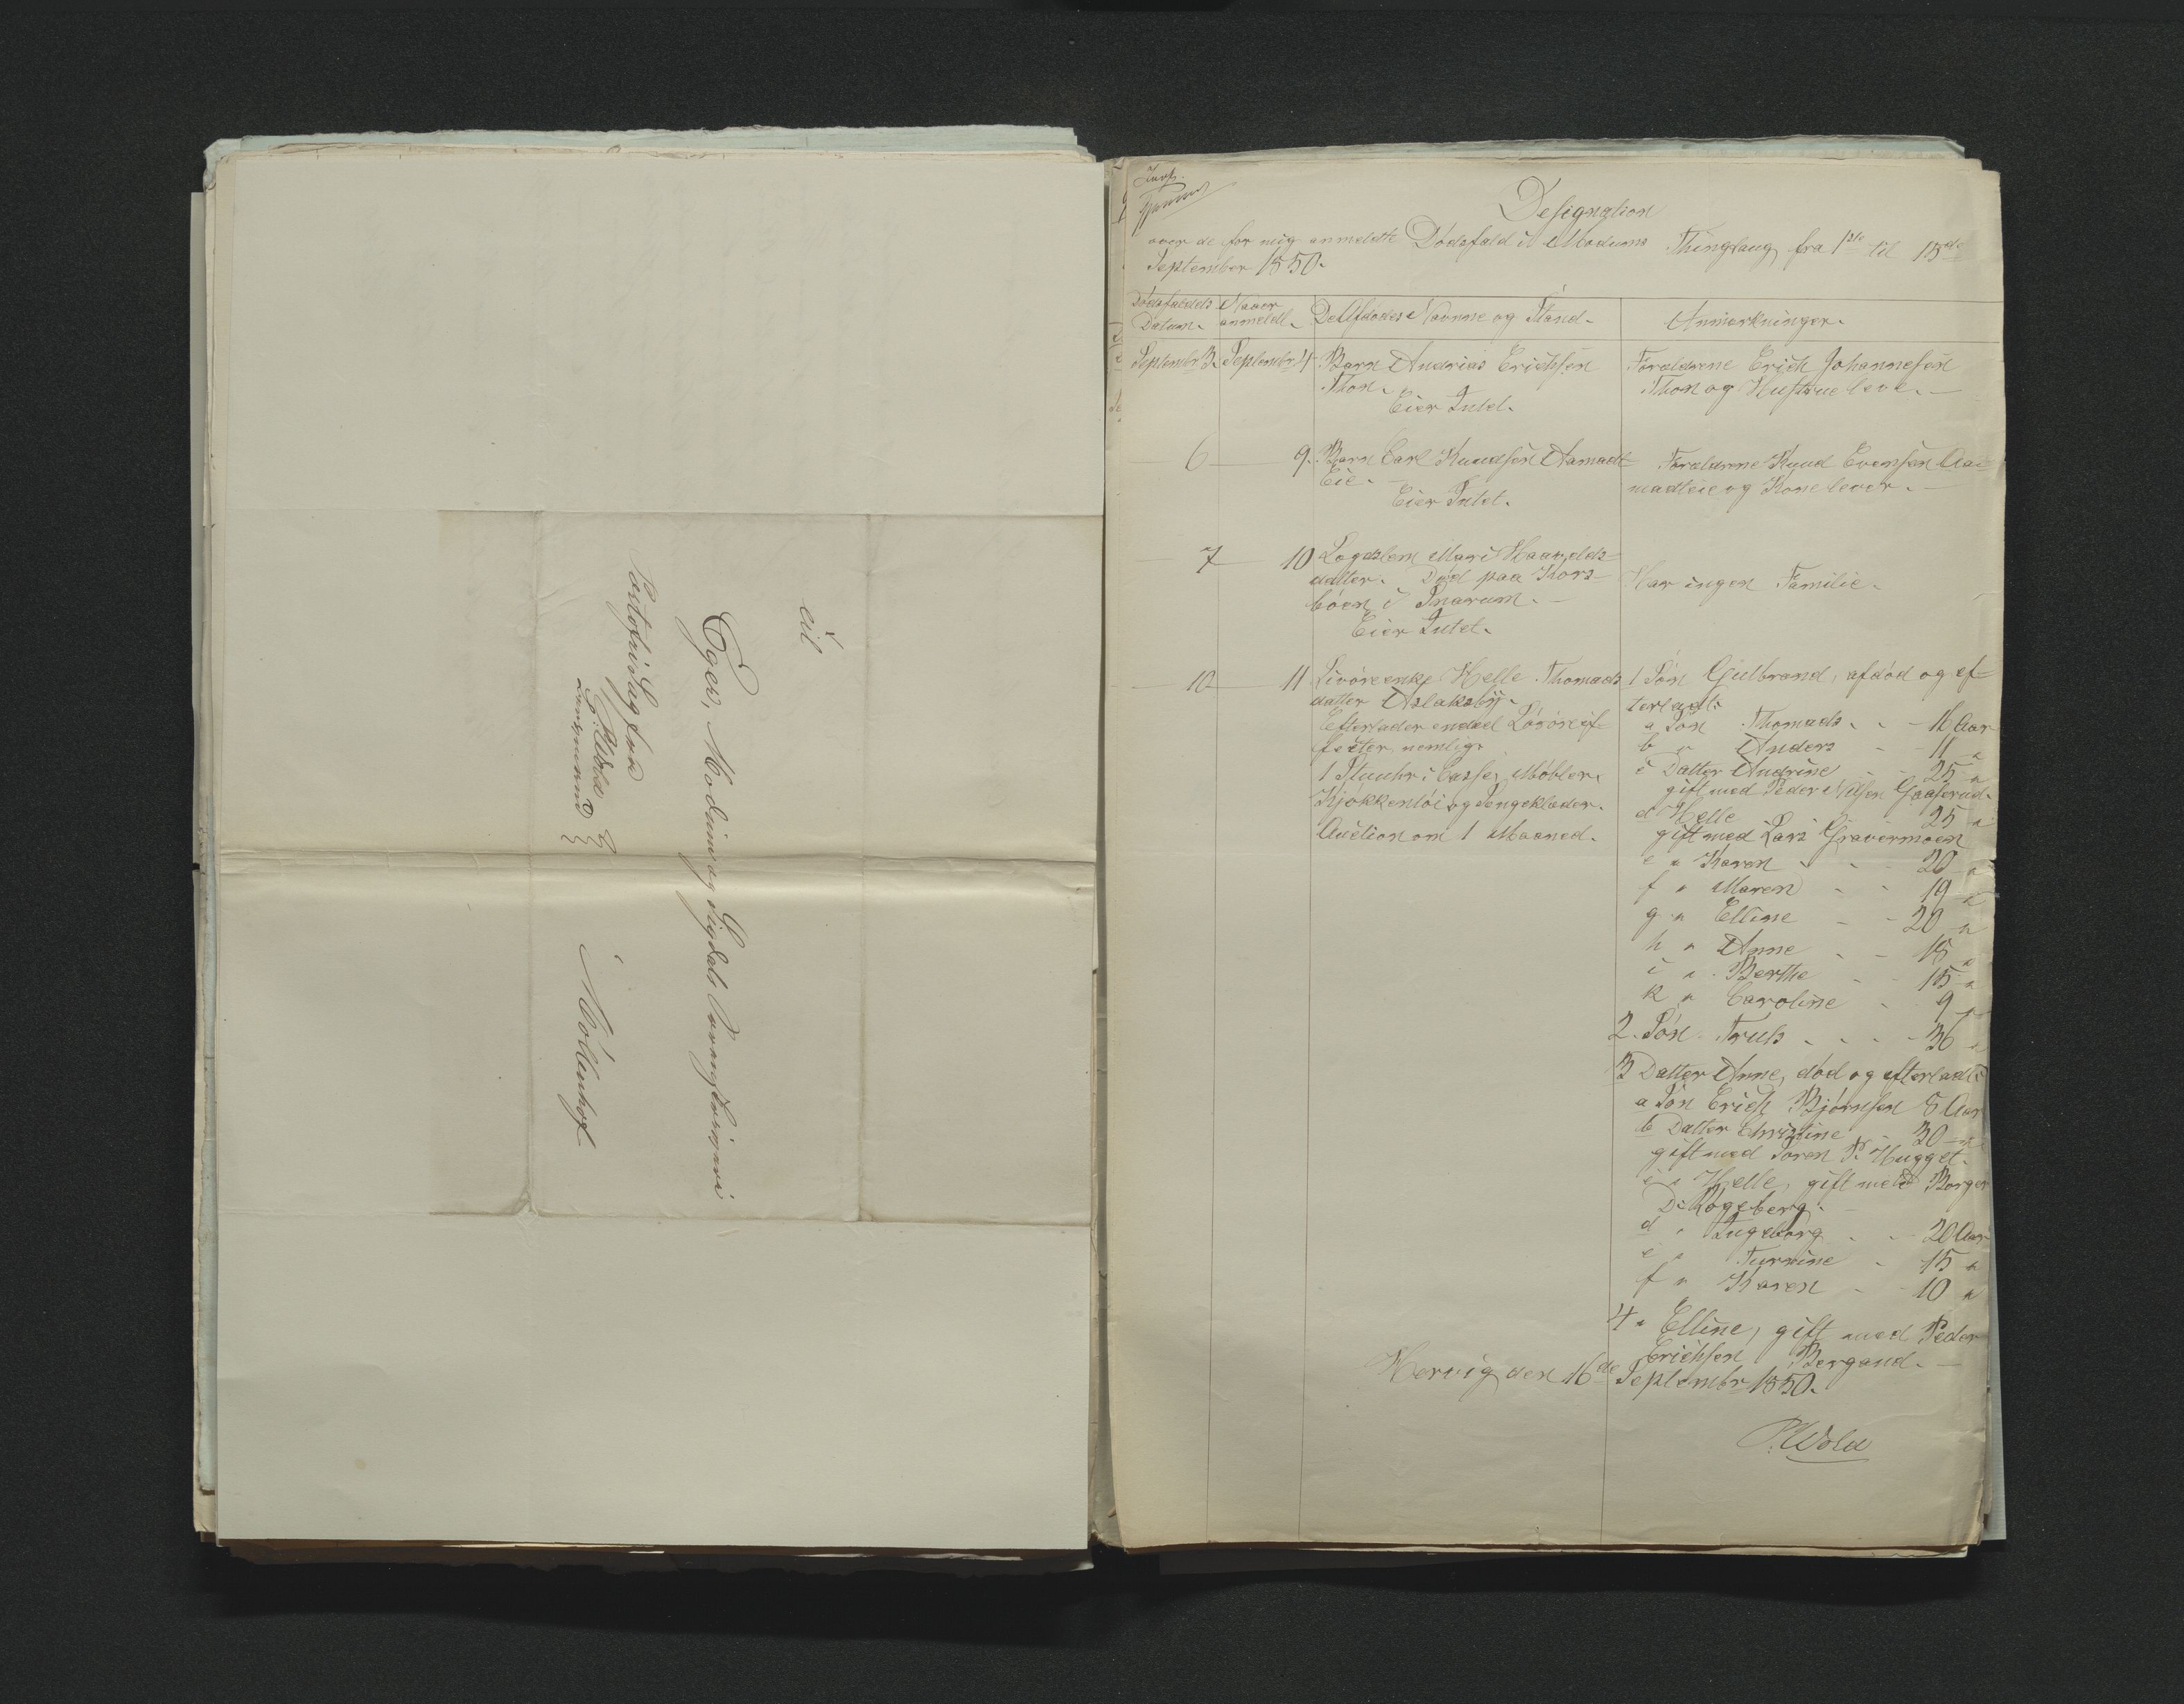 til
Eger, Modum og Sigdals Sorenskriveri
Møllenhof
P. Wold
Lensmand
Designation
over de for mig anmeldte Dødsfald i Modums Thinglaug fra 1ste til 15de
September 1850.
Dødsfaldets Naar
Datum. anmeldt. De Afdødes Navnne og Stand. Anmærkninger.
Septembr 3. Septembr 4 Barn Andrias Erichsen
Thon.
Eier Intet.
Foraldrene Erich Johannesen
Thon og Hustrue leve.
6 9. Barn Carl Knudsen Aamadt
Eie.
Eier Intet.
Foraldrene Knud Evensen Aa-
madteie og Kone lever.
7 10 Lægdslem Mari Haavelds-
datter. Død paa Kors-
bøen i Snarum.
Eier Intet.
Har ingen Familie.
10 11 Livøreenke Helle Thomads
datter Aslaksby.
Efterlader endeel Løsøreef-
fecter, nemlig:
1 Stuuhr i Casse, Møbler,
Kjøkkentøi og Sengeklæder.
Auction om 1 Maaned.
1 Søn Gulbrand, afdød og ef-
terladt:
a Søn Thomads 16 Aar
b " Anders 11 "
c Datter Andrine 25 "
gift med Peder Nilsen Gaaserud.
d " Helle 25 "
gift med Lars Gravermoen
e " Karen 20 "
f " Maren 19 "
g " Elline 20 "
h " Anne 18 "
i " Berthe 15 "
k " Caroline 9 "
2. Søn Truls 36 "
3 Datter Anne, død og efterladt:
a Søn Erich Bjørnsen 8 Aar
b Datter Christine 30 "
gift med Søren P. Hugget.
c " Helle, gift med Borger
D. Kogeberg.
d " Ingeborg 20 Aar
e " Turine 15 "
f " Karen 10 "
4 " Elline, gift med Peder
Erichsen Bergand.
Hervig den 16de Septembr 1850.
P. Wold